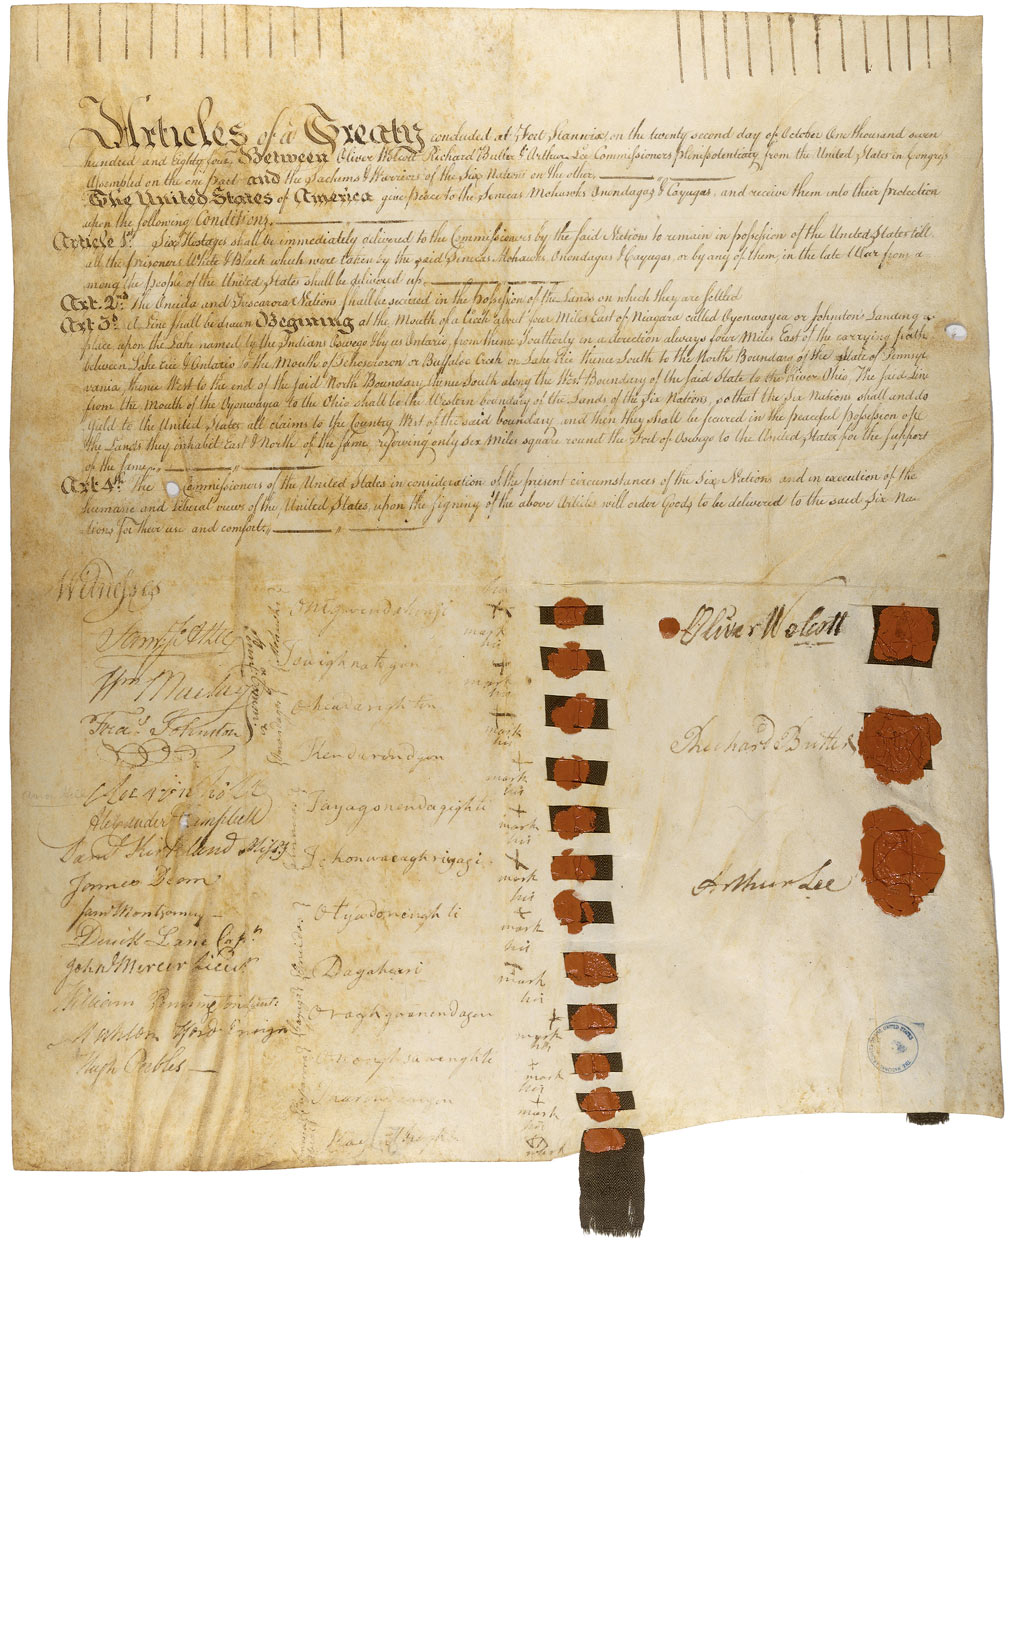 Articles of a Treaty concluded at Fort Stanwix on the twenty second day of October One thousand seven
hundred and eighty four, Between Oliver Wolcott Richard Butler & Arthur Lee Commissioners plenipotentiary from the United States in Congress
Assembled on the one part and the Sachems & Warriors of the Six Nations on the other.
The United States of America give peace to the Senecas Mohawks Onondagas & Cayugas, and receive them into their protection
upon the following Conditions.
Article 1st. Six Hostages shall be immediately delivered to the Commissioners by the said Nations to remain in possession of the United States till
all the prisoners White & Black which were taken by the said Senecas Mohawks, Onondagas & Cayugas, or by any of them, in the late War from a-
mong the people of the United States shall be delivered up.
Art. 2nd. The Oneida and Tuscarora Nations shall be secured in the Possession of the Lands on which they are settled
Art 3d. A Line shall be drawn Begining at the Mouth of a Creek about four Miles East of Niagara called Oyonwayea or Johnston's Landing a-
place upon the Lake named by the Indians Oswego & by us Ontario, from thence Southerly in a direction always four Miles East of the carrying path
between Lake Erie & Ontario to the Mouth of Tehoseroron or Buffaloe Creek on Lake Erie thence South to the North Boundary of the State of Pennsyl
vania thence West to the end of the said North Boundary thence South along the West Boundary of the said State to the River Ohio, The said Line
from the Mouth of the Oyonwayea to the Ohio shall be the Western boundary of the Lands of the Six Nations, so that the Six Nations shall and do
Yield to the United States all claims to the Country West of the said boundary, and then they shall be secured in the peaceful possession of
the Lands they inhabit East & North of the same, reserving only six Miles square round the Fort of Oswego to the United States for the support
of the same.
Art. 4th. The Commissioners of the United States in consideration of the present circumstances of the Six Nations and in execution of the
humane and liberal views of the United States upon the signing of the above Articles will order Goods to be delivered to the said Six Na-
tions for their use and comfort.
Witnesses
his
mark
Oliver Wolcott
his
mark
Wm Maclay
his
mark
Fras. Johnston
Richard Butler
Kendarondyon
his
mark
Tayagonendagighti
his
mark
Alexander Campbell
Saml Kirkland Missy
Tehonwaeaghriyagi
his
mark
James Dean
Arthur Lee
Saml Montgomery
Otyadonenghti
his
mark
Derick Lane Capn
John Mercer Lieut
Dagaheari
his
mark
William Pennington Lieut
Oraghgoanendagen
his
mark
Mahlon Hord Ensign
Hugh Peebles
his
mark
his
mark
his
mark